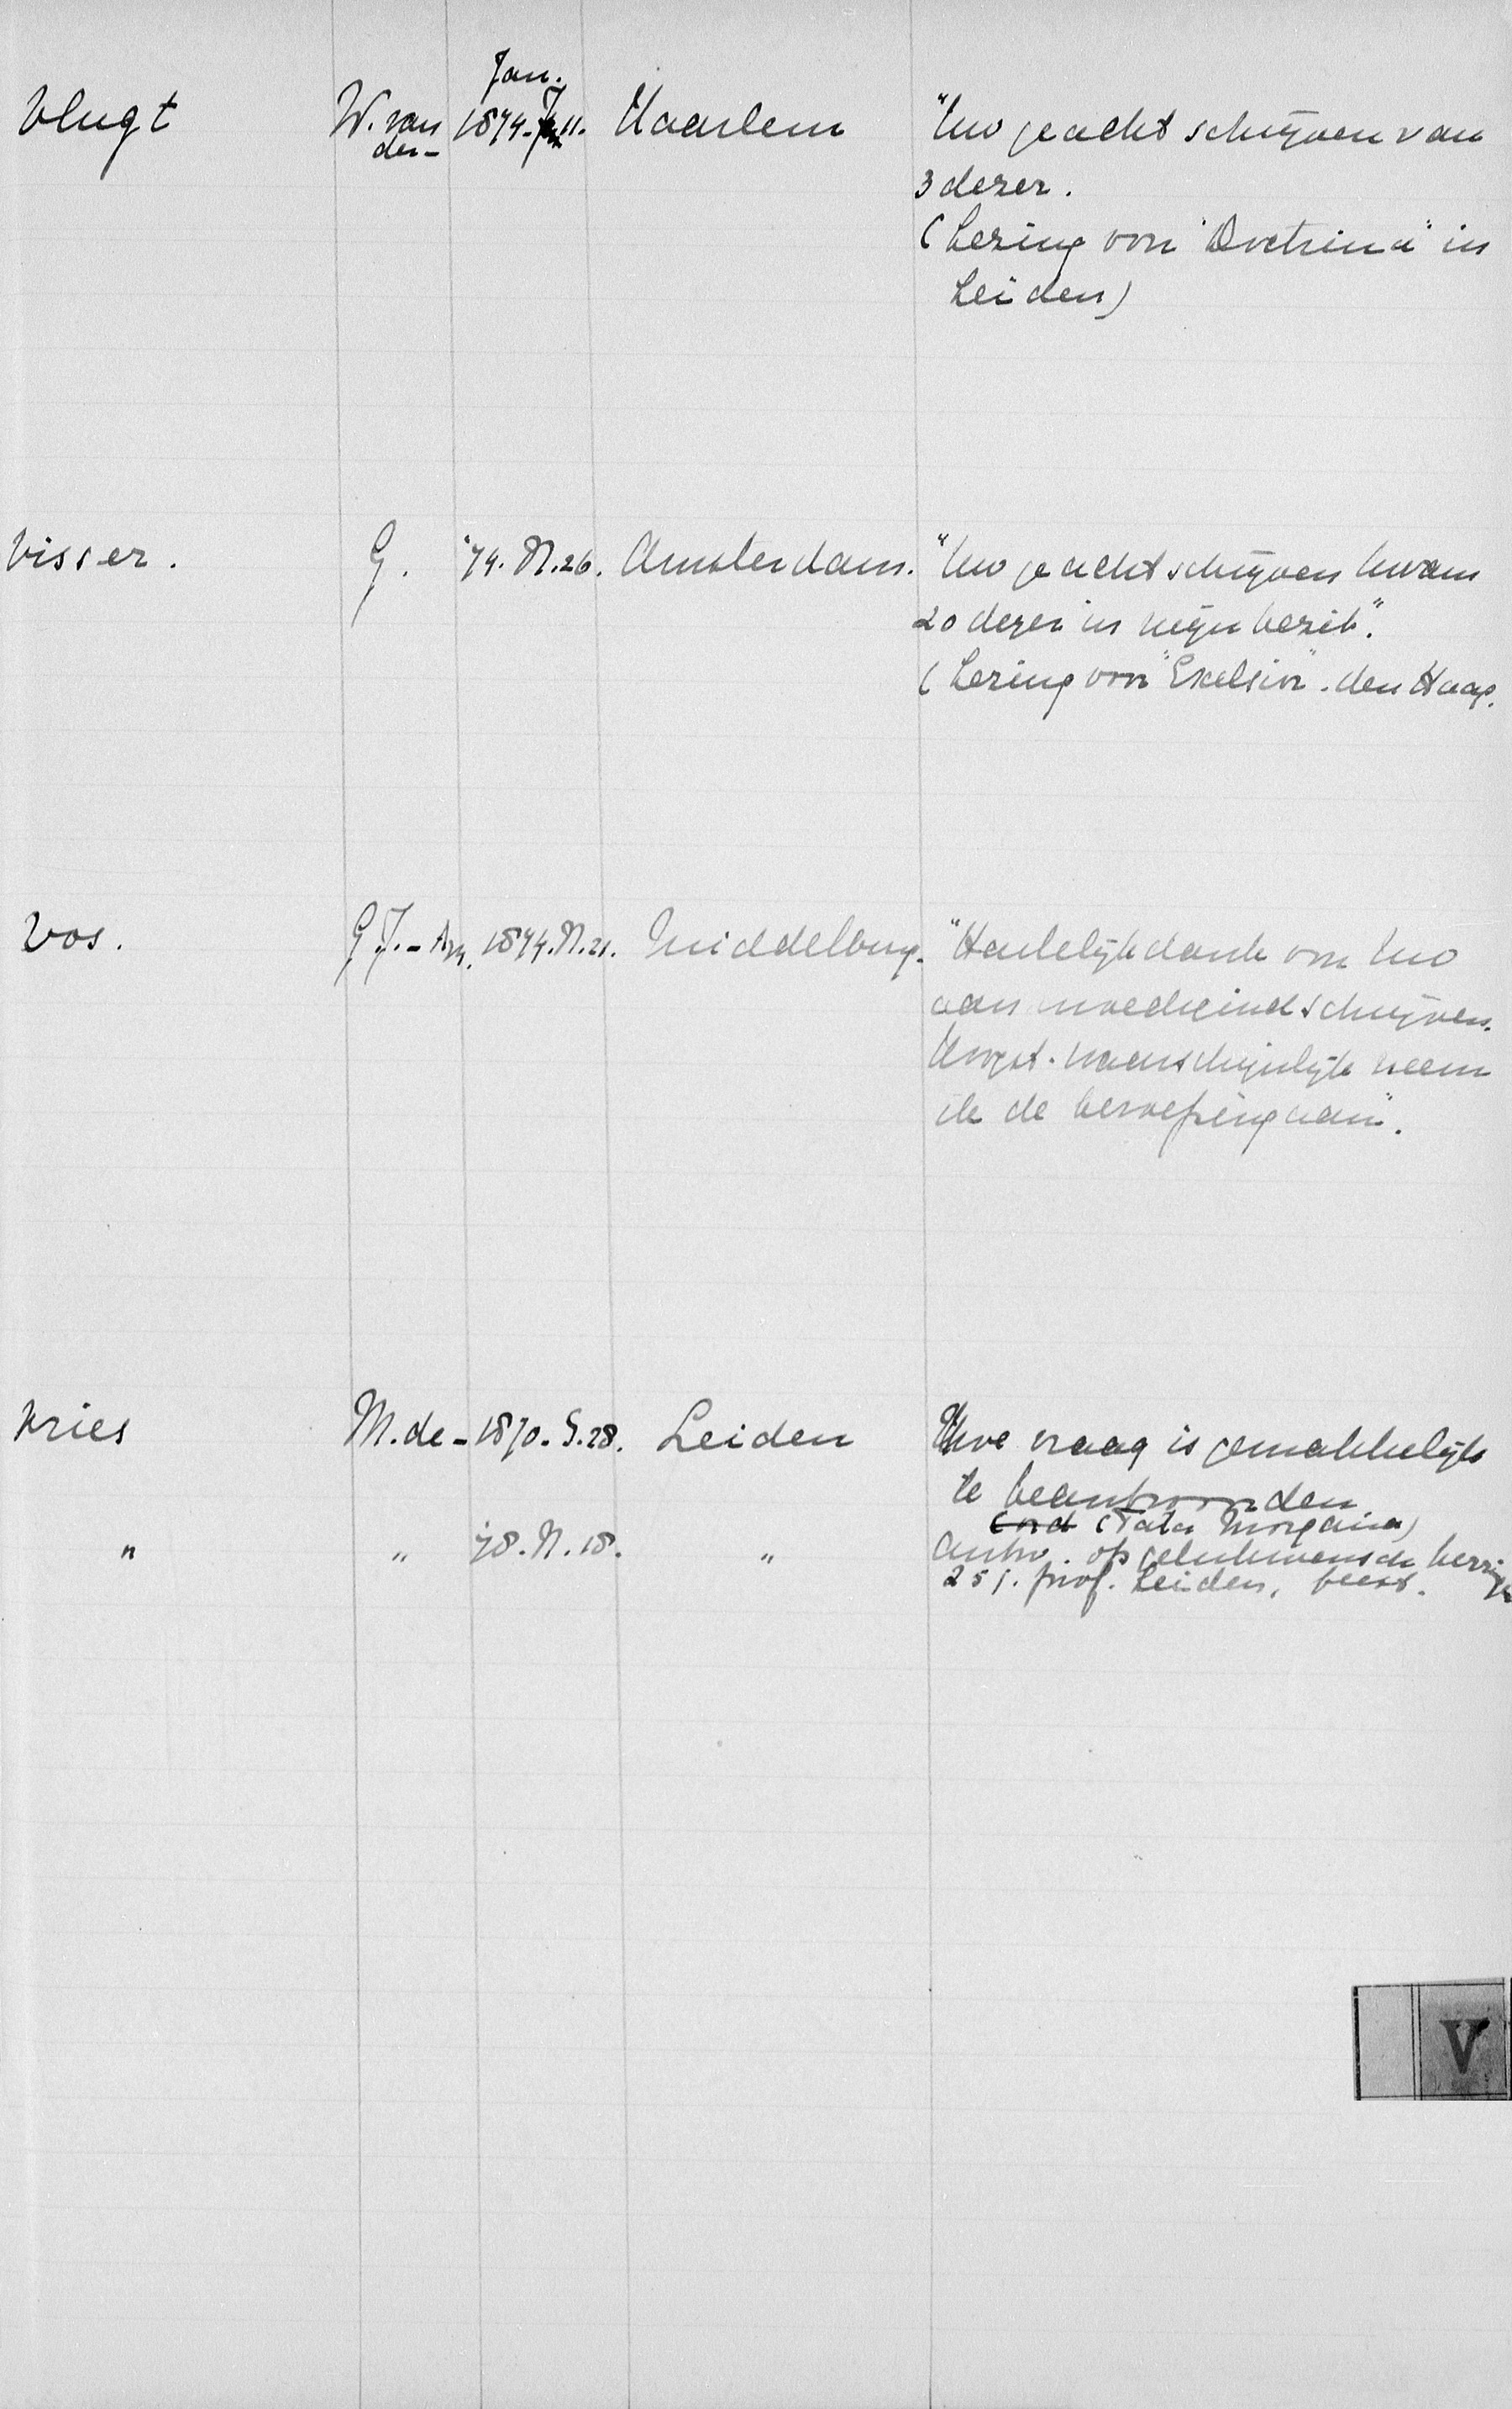 Vlugt W. van der- Jan. 1874. 11. Haarlem "Uw geacht schrijven van
3 dezer.
(Lezing voor "Doctrina" in
Leiden)
Visser. G. '74. N. 26. Amsterdam. "Uw geacht schrijven kwam
20 dezer in mijn bezit".
(Lezing voor "Exelsior". den Haag.
Vos. G.J. - Azn. 1874. N. 21. Middelburg. "Hartelijk dank voor Uw
aanmoedigend schrijven.
Hoogst. waarschijnlijk neem
ik de beroeping aan".
Vries M. de - 1870. S. 28. Leiden Uwe vraag is gemakkelijk
te beantwoorden
(Fata Morgana)
" " 78. N. 18. " Antw. op gelukwensch
25 j. prof. Leiden. feest.
V